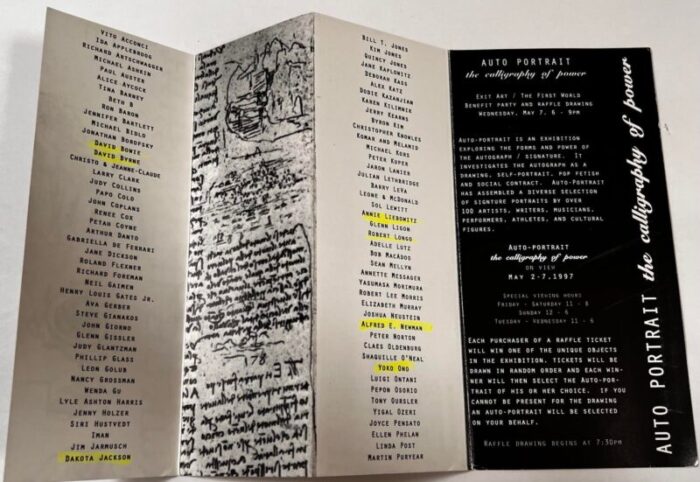 Vito Acconci
Ida Applebroog
Richard Artschwager
Michael Ashkin
Paul Auster
Alice Aycock
Tina Barney
Beth B
Ron Baron
Jennifer Bartlett
Michael Bidlo
Jonathan Borofsky
David Bowie
David Byrne
Christo & Jeanne-Claude
Larry Clark
Judy Collins
Papo Colo
John Coplans
Renee Cox
Petah Coyne
Arthur Danto
Gabriella De Ferrari
Jane Dickson
Roland Flexner
Richard Foreman
Neil Gaimen
Henry Louis Gates Jr.
Ava Gerber
Steve Gianakos
John Giorno
Glenn Gissler
Judy Glantzman
Phillip Glass
Leon Golub
Nancy Grossman
Wenda Gu
Lyle Ashton Harris
Jenny Holzer
Siri Hustvedt
Iman
Jim Jarmusch
Dakota Jackson
78
Bill T. Jones
Kim Jones
Quincy Jones
Jane Kaplowitz
Deborah Kass
Alex Katz
Dodie Kazanjian
Karen Kilimnik
Jerry Kearns
Byron Kim
Christopher Knowles
Komar and Melamid
Michael Kors
Peter Kuper
Jaron Lanier
Julian Lethbridge
Barry LeVa
Leone & McDonald
Sol Lewitt
Annie Liebowitz
Glenn Ligon
Robert Longo
Adelle Lutz
Bob MacAdos
Sean Mellyn
Annette Messager
Yasumasa Morimura
Robert Lee Morris
Elizabeth Murray
Joshua Neustein
Alfred E. Newman
Peter Norton
Claes Oldenburg
Shaquille O'Neal
Yoko Ono
Luigi Ontani
Pepon Osorio
Tony Oursler
Yigal Ozeri
Joyce Pensato
Ellen Phelan
Linda Post
Martin Puryear
AUTO PORTRAIT
the calligraphy of power
Exit Art / The First World
Benefit party and raffle drawing
Wednesday, May 7, 6 - 9pm
Auto-Portrait is an exhibition
exploring the forms and power of
the autograph / signature. It
investigates the autograph as a
drawing, self-portrait, pop fetish
and social contract. Auto-Portrait
has assembled a diverse selection
of signature portraits by over
100 artists, writers, musicians,
performers, athletes, and cultural
figures.
Auto-Portrait
the calligraphy of power
on view
May 2-7, 1997
Special viewing hours
Friday - Saturday 11 - 8
Sunday 12 - 6
Tuesday - Wednesday 11 - 6
Each purchaser of a raffle ticket
will win one of the unique objects
in the exhibition. Tickets will be
drawn in random order and each win-
ner will then select the Auto-Por-
trait of his or her choice. If you
cannot be present for the drawing
an auto-portrait will be selected
on your behalf.
Raffle drawing begins at 7:30pm
AUTO PORTRAIT the calligraphy of power